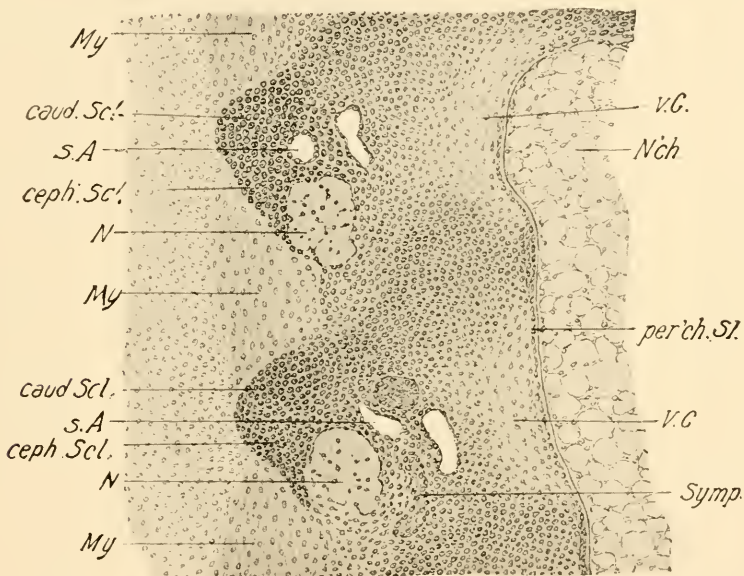 My
caud. Scl.
s.A
ceph. Scl.
N
My
caud Scl.
s.A
ceph. Scl.
N
My
V.C.
N'ch
per'ch. Sl.
V.C
Symp.